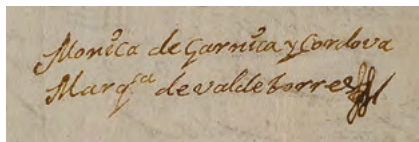 Monica de Garnica y Cordova
Marq.sa de valdetorres